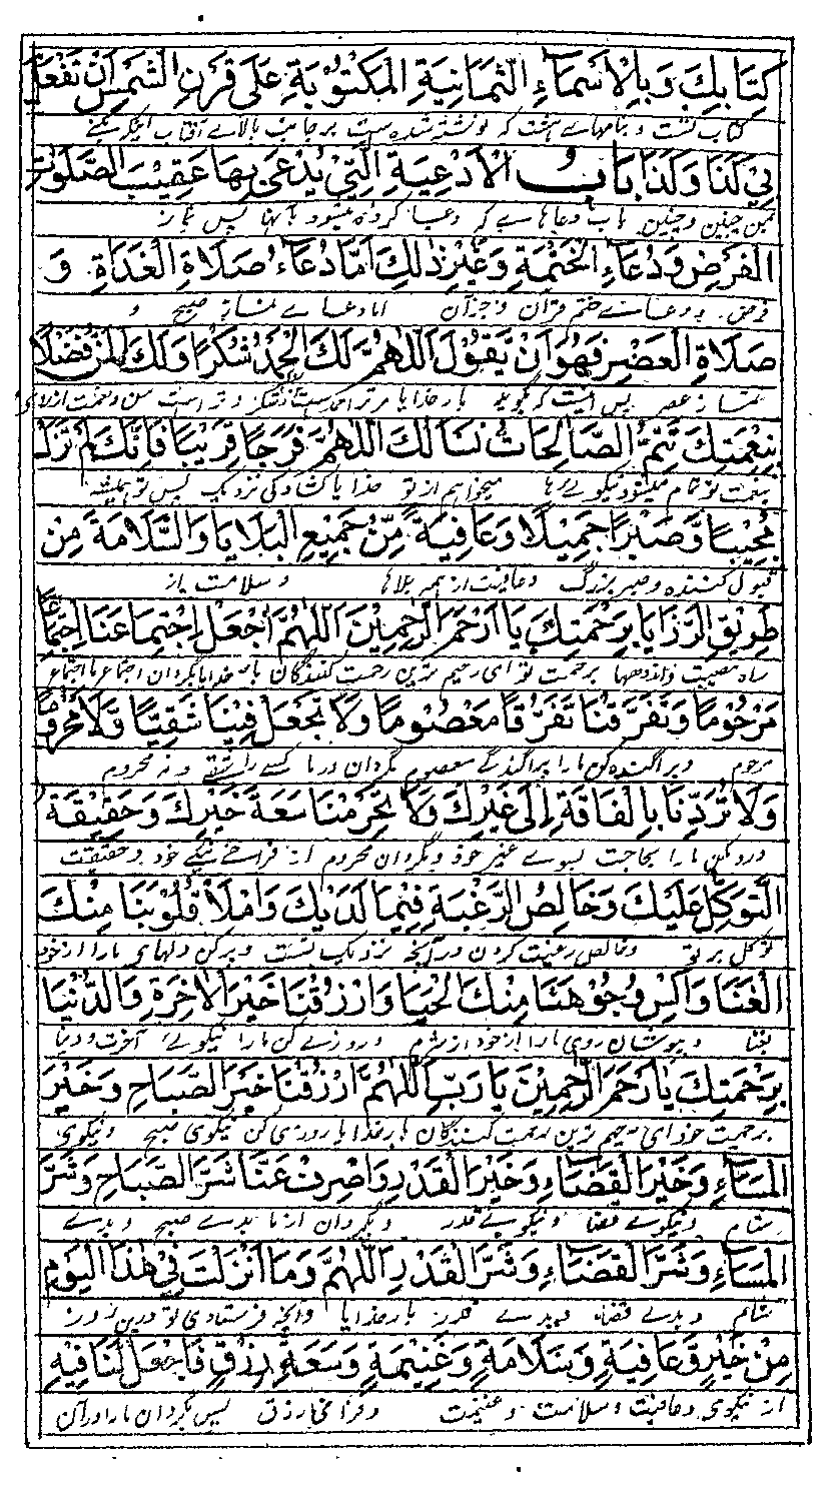 كِتَابِكَ وَبِالْاَسْمَآءِ الثَّمَانِيَةِ الْمَكْتُوْبَةِ عَلٰى قَرْنِ الشَّمْسِ اَنْ تَفْعَلَ
کتاب تست و بنامهای هشت که نوشته شده است بر جانب بالای آفتاب اینکه بکنی
بِيْ كَذَا وَكَذَا بَابُ الْاَدْعِيَةِ الَّتِيْ يُدْعٰى بِهَا عَقِيْبَ الصَّلَوٰتِ
بمن چنین و چنین باب دعاهای که دعا کرده میشود بآنها پس نماز
الْفَرْضِ وَدُعَآءِ الْخَتْمَةِ وَغَيْرِ ذٰلِكَ اَمَّا دُعَآءُ صَلَاةِ الْغَدَاةِ وَ
فرض و دعای ختم قرآن و جز آن اما دعای نماز صبح و
صَلَاةِ الْعَصْرِ فَهُوَ اَنْ يَّقُوْلَ اَللّٰهُمَّ لَكَ الْحَمْدُ شُكْرًا وَلَكَ الْمَنُّ فَضْلًا
نماز عصر پس اینست که گوید بار خدایا مر ترا حمد است شکر و تراست من و نعمت از روی
بِنِعْمَتِكَ تَتِمُّ الصَّالِحَاتُ نَسْاَلُكَ اَللّٰهُمَّ فَرَجًا قَرِيْبًا فَاِنَّكَ لَمْ تَزَلْ
بنعمت تو تمام میشود نیکوئیها میخواهم از تو خدایا کشادگی نزدیک پس تو همیشه
مُجِيْبًا وَّصَبْرًا جَمِيْلًا وَعَافِيَةً مِّنْ جَمِيْعِ الْبَلَايَا وَالسَّلَامَةَ مِنْ
قبول کننده و صبر بزرگ و عافیت از همه بلاها و سلامت از
طَرِيْقِ الرَّزَايَا بِرَحْمَتِكَ يَا اَرْحَمَ الرَّاحِمِيْنَ اَللّٰهُمَّ اجْعَلْ اِجْتِمَاعَنَا اِجْتِمَاعًا
راه مصیبت و اندوهها برحمت تو ای رحیم ترین رحمت کنندگان بار خدایا بگردان اجتماع ما اجتماع
مَرْحُوْمًا وَتَفَرُّقَنَا تَفَرُّقًا مَعْصُوْمًا وَلَا تَجْعَلْ فِيْنَا شَقِيًّا وَّلَا مَحْرُوْمًا
مرحوم و پراگنده کن ما را پراگندگی معصوم بگردان در ما کسی را شقی و نه محروم
وَلَا تَرُدَّنَا بِالْفَاقَةِ اِلٰى غَيْرِكَ وَلَا تَحْرِمْنَا سَعَةَ خَيْرِكَ وَحَقِيْقَةَ
و رد مکن ما را بحاجت بسوی غیر خود و بگردان محروم از فراخی نیکی خود و حقیقت
التَّوَكُّلِ عَلَيْكَ وَخَالِصَ الرَّغْبَةِ فِيْمَا لَدَيْكَ وَامْلَأْ قُلُوْبَنَا مِنْكَ
توکل بر تو و خالص رغبت کردن در آنچه نزدیک تست و پر کن دلهای ما را از خود
الْغِنَا وَاكْسِ وُجُوْهَنَا مِنْكَ الْحَيَا وَارْزُقْنَا خَيْرَ الْاٰخِرَةِ وَالدُّنْيَا
بغنا و بپوشان روی ما را از خود از شرم و روزی کن ما را نیکوئی آخرت و دنیا
بِرَحْمَتِكَ يَا اَرْحَمَ الرَّاحِمِيْنَ يَا رَبِّ اَللّٰهُمَّ ارْزُقْنَا خَيْرَ الصَّبَاحِ وَخَيْرَ
برحمت خود ای رحیم ترین رحمت کنندگان بار خدایا روزی کن نیکوی صبح و نیکوی
الْمَسَآءِ وَخَيْرَ الْقَضَآءِ وَخَيْرَ الْقَدَرِ وَاصْرِفْ عَنَّا شَرَّ الصَّبَاحِ وَشَرَّ
شام و نیکوئی قضا و نیکوئی قدر و بگردان از ما بدی صبح و بدی
الْمَسَآءِ وَشَرَّ الْقَضَآءِ وَشَرَّ الْقَدَرِ اَللّٰهُمَّ وَمَا اَنْزَلْتَ فِيْ هٰذَا الْيَوْمِ
شام و بدی قضا و بدی قدر بار خدایا و آنچه فرستادی تو درین روز
مِنْ خَيْرٍ وَّعَافِيَةٍ وَسَلَامَةٍ وَغَنِيْمَةٍ وَسَعَةِ رِزْقٍ فَاجْعَلْ لَنَا فِيْهِ
از نیکوی و عافیت و سلامت و غنیمت و فراخی رزق پس بگردان ما را در آن